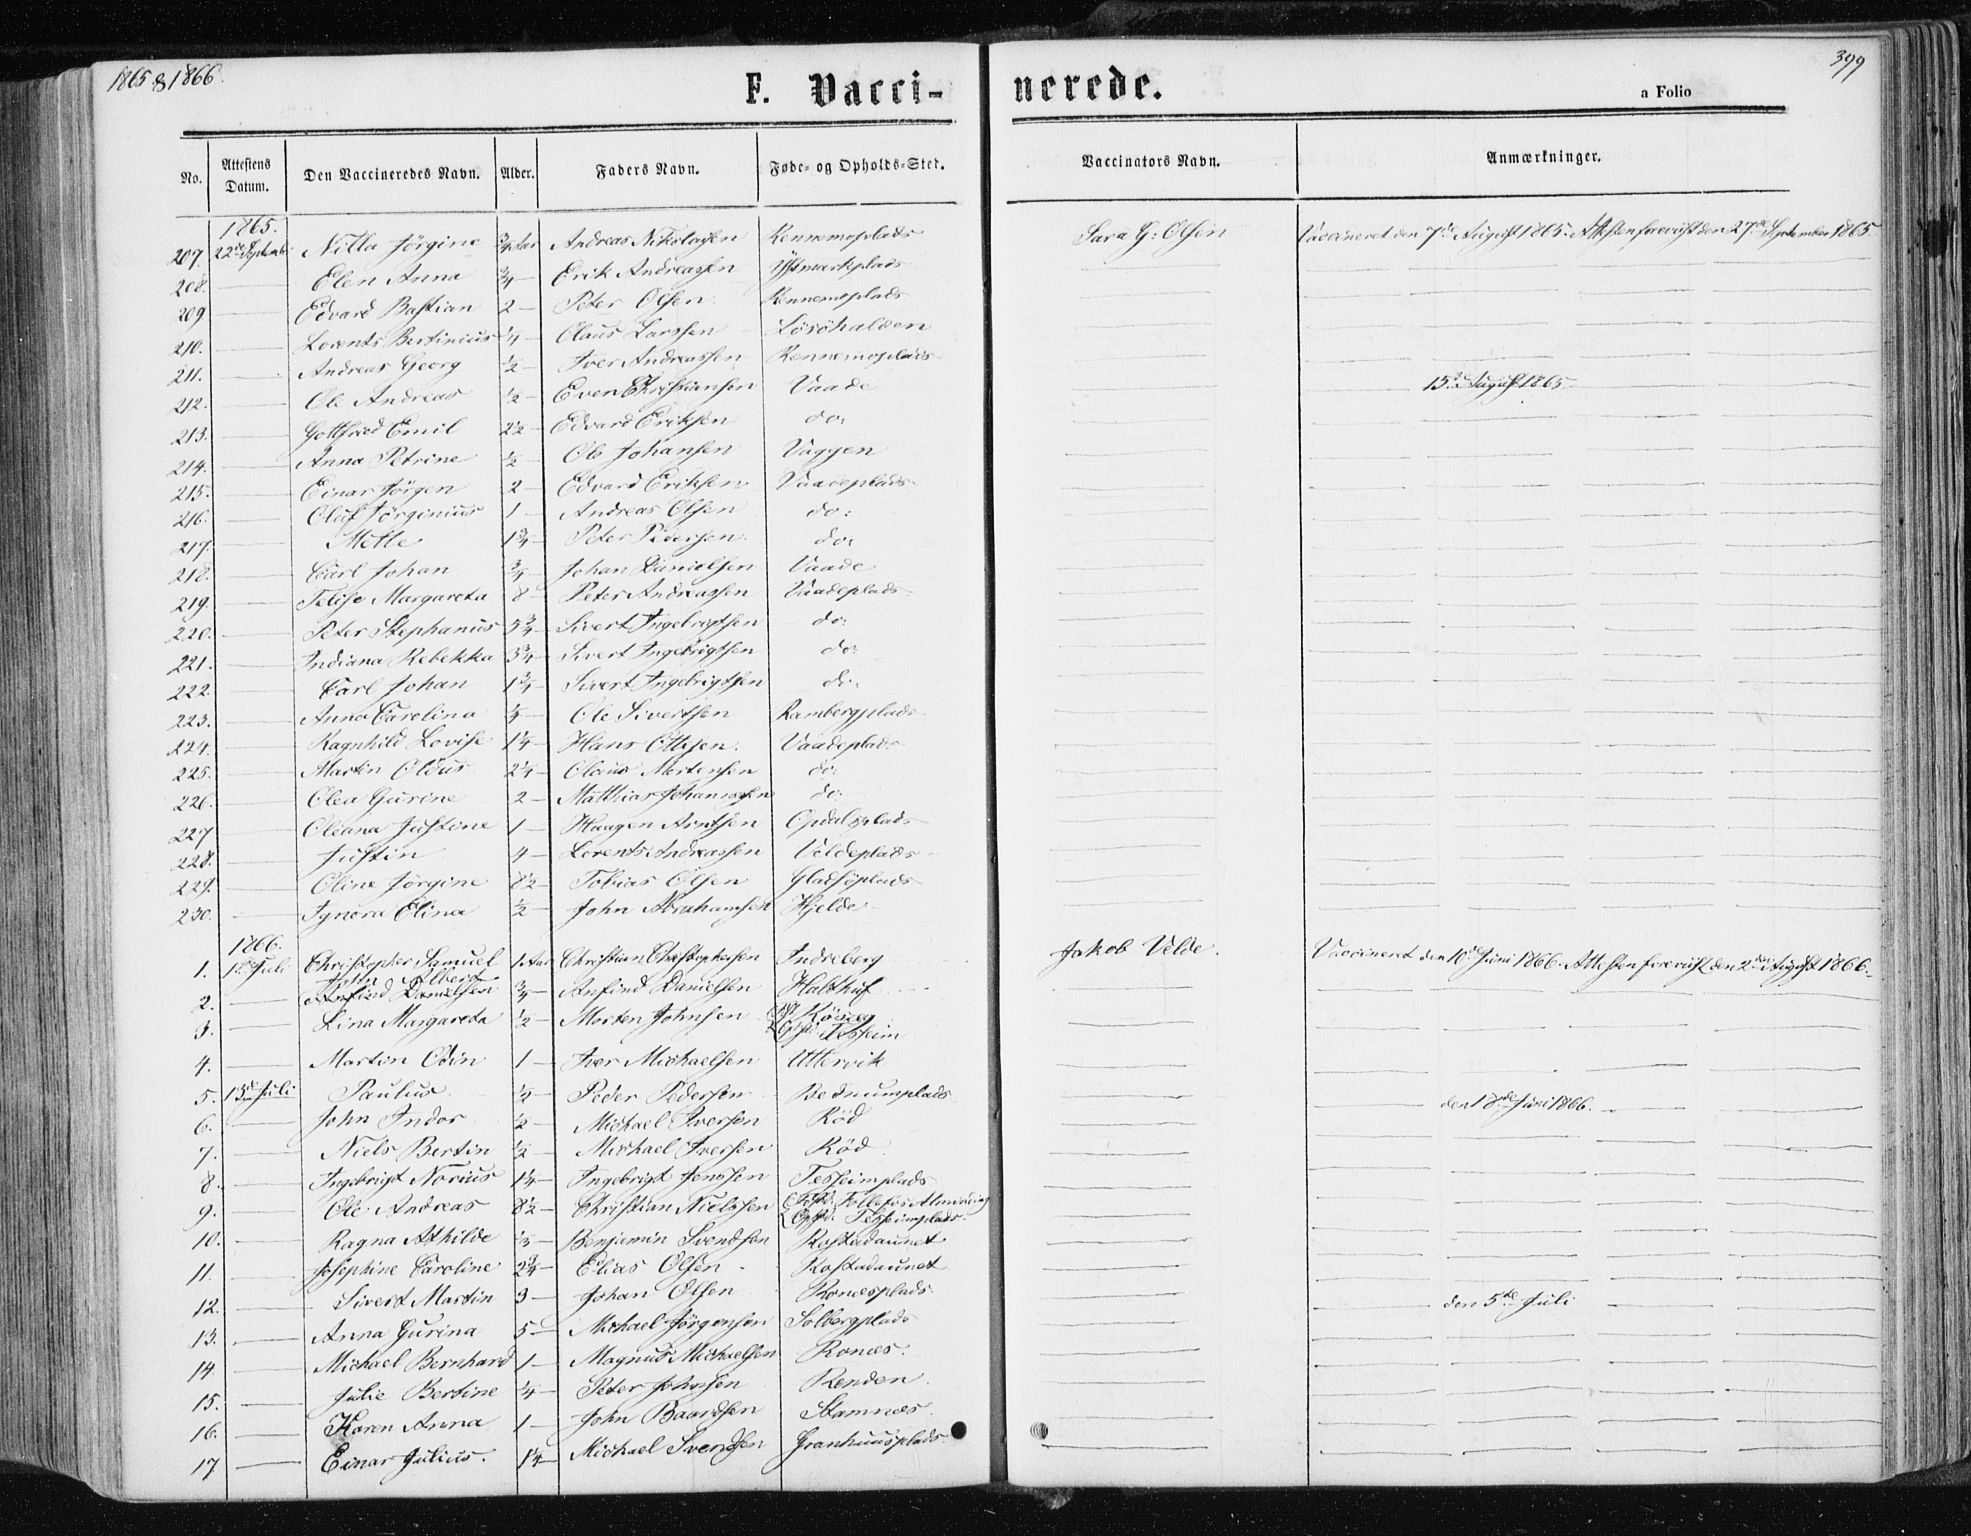 1865 & 1866.
399
F. Vacci-nerede.
a Folio
No. Attestens Datum. Den Vaccineredes Navn. Alder. Faders Navn. Føde- og Opholds-Sted. Vaccinators Navn. Anmærkninger.
1865.
207. 22de September Nilla Jörgine 3/4 Aar Andreas Nikolaisen Rennemoplads Sara G: Olsen Vaccineret den 7de August 1865. Attesten forevist den 27de September 1865
208. — Elen Anna 3/4 — Erik Andreassen
209 — Edvard Bastian 2 — Peter Olsen Rennemoplads
210. — Lorents Bertinius 1/4 — Claus Larssen Lösöhalden
211. — Andreas Georg 1/2 — Iver Andreassen Rennemoplads
212. — Ole Andreas 1/2 — Even Christiansen Vaade 15de August 1865
213. — Gottfried Emil 2 1/2 — Edvard Eriksen do:
214. — Anna Petrine 1/2 — Ole Johansen Vaggen
215. — Einar Jörgen 2 — Edvard Eriksen Vaadeplads
216. — Oluf Jörginius 1 — Andreas Olsen do:
217. — Mette 1 3/4 — Peter Pedersen do:
218. — Carl Johan 3/4 — Johan Danielsen Vaade
219. — Felise Margareta 8 — Peter Andreassen Vaadeplads
220. — Peter Stephanus 5 3/4 — Sivert Ingebrigtsen do:
221. — Indiana Rebekka 3 3/4 — Sivert Ingebrigtsen do:
222. — Carl Johan 1 3/4 — Sivert Ingebrigtsen do:
223. — Anna Carolina 1/4 — Ole Sivertsen Rambergplads
224. — Ragnhild Lovise 1 1/4 — Hans Ottesen Vaadeplads
225. — Martin Olaus 2 1/4 — Olaus Mortensen do:
226. — Olea Gurine 2 — Matthias Johannesen do:
227 — Oleana Justine 1 — Haagen Arntsen Opdalsplads
228. — Justin 4 — Lorents Andreassen Veldeplads
229. — Oline Jörgine 8 1/2 — Tobias Olsen Gladsöplads
230. — Ignora Elina 1/2 — John Abrahamsen Hjelde
1866.
1. 1ste Juli Christopher Samuel 1 Aar Christian Christophersen Indreberg Jakob Velde. Vaccineret den 10de Juni 1866. Attesten forevist den 2den August 1866.
John Albert
2. — Anfind Danielsen 3/4 — Anfind Danielsen Halthuf
3. — Lina Margareta 1/2 — Morten Johnsen Rösæg Opd: Tesseim
4. — Martin Odin 1 — Iver Michaelsen Uttervik
5. 13de Juli Paulus 1/4 — Peder Pedersen Bednumplads den 18de Juni 1866.
6. — John Indor 1/2 — Michael Iversen Röd
7. — Niels Bertin 1/2 — Michael Iversen Röd
8. — Ingebrigt Norius 1 1/4 — Ingebrigt Jenssen Tesseimplads
9. — Ole Andreas 8 1/2 — Christian Nielssen Follefos Almening Opd: Tesseimplads
10. — Ragna Athilde 1/3 — Benjamin Svendsen Rostadaunet
11. — Josephine Caroline 2 3/4 — Elias Olsen Rostadaunet
12. — Sivert Martin 3 — Johan Olsen Ronesplads den 5te Juli
13. — Anna Gurina 5 — Michael Jörgensen Solbergplads
14 — Michael Bernhard 1 — Magnus Michaelsen Rones.
15. — Julie Bertine 1/4 — Peter Johnsen Renden
16. — Karen Anna 1 — John Baardsen Stamnes
17 — Einar Julius. 1 1/4 — Michael Svendsen Granhuusplads